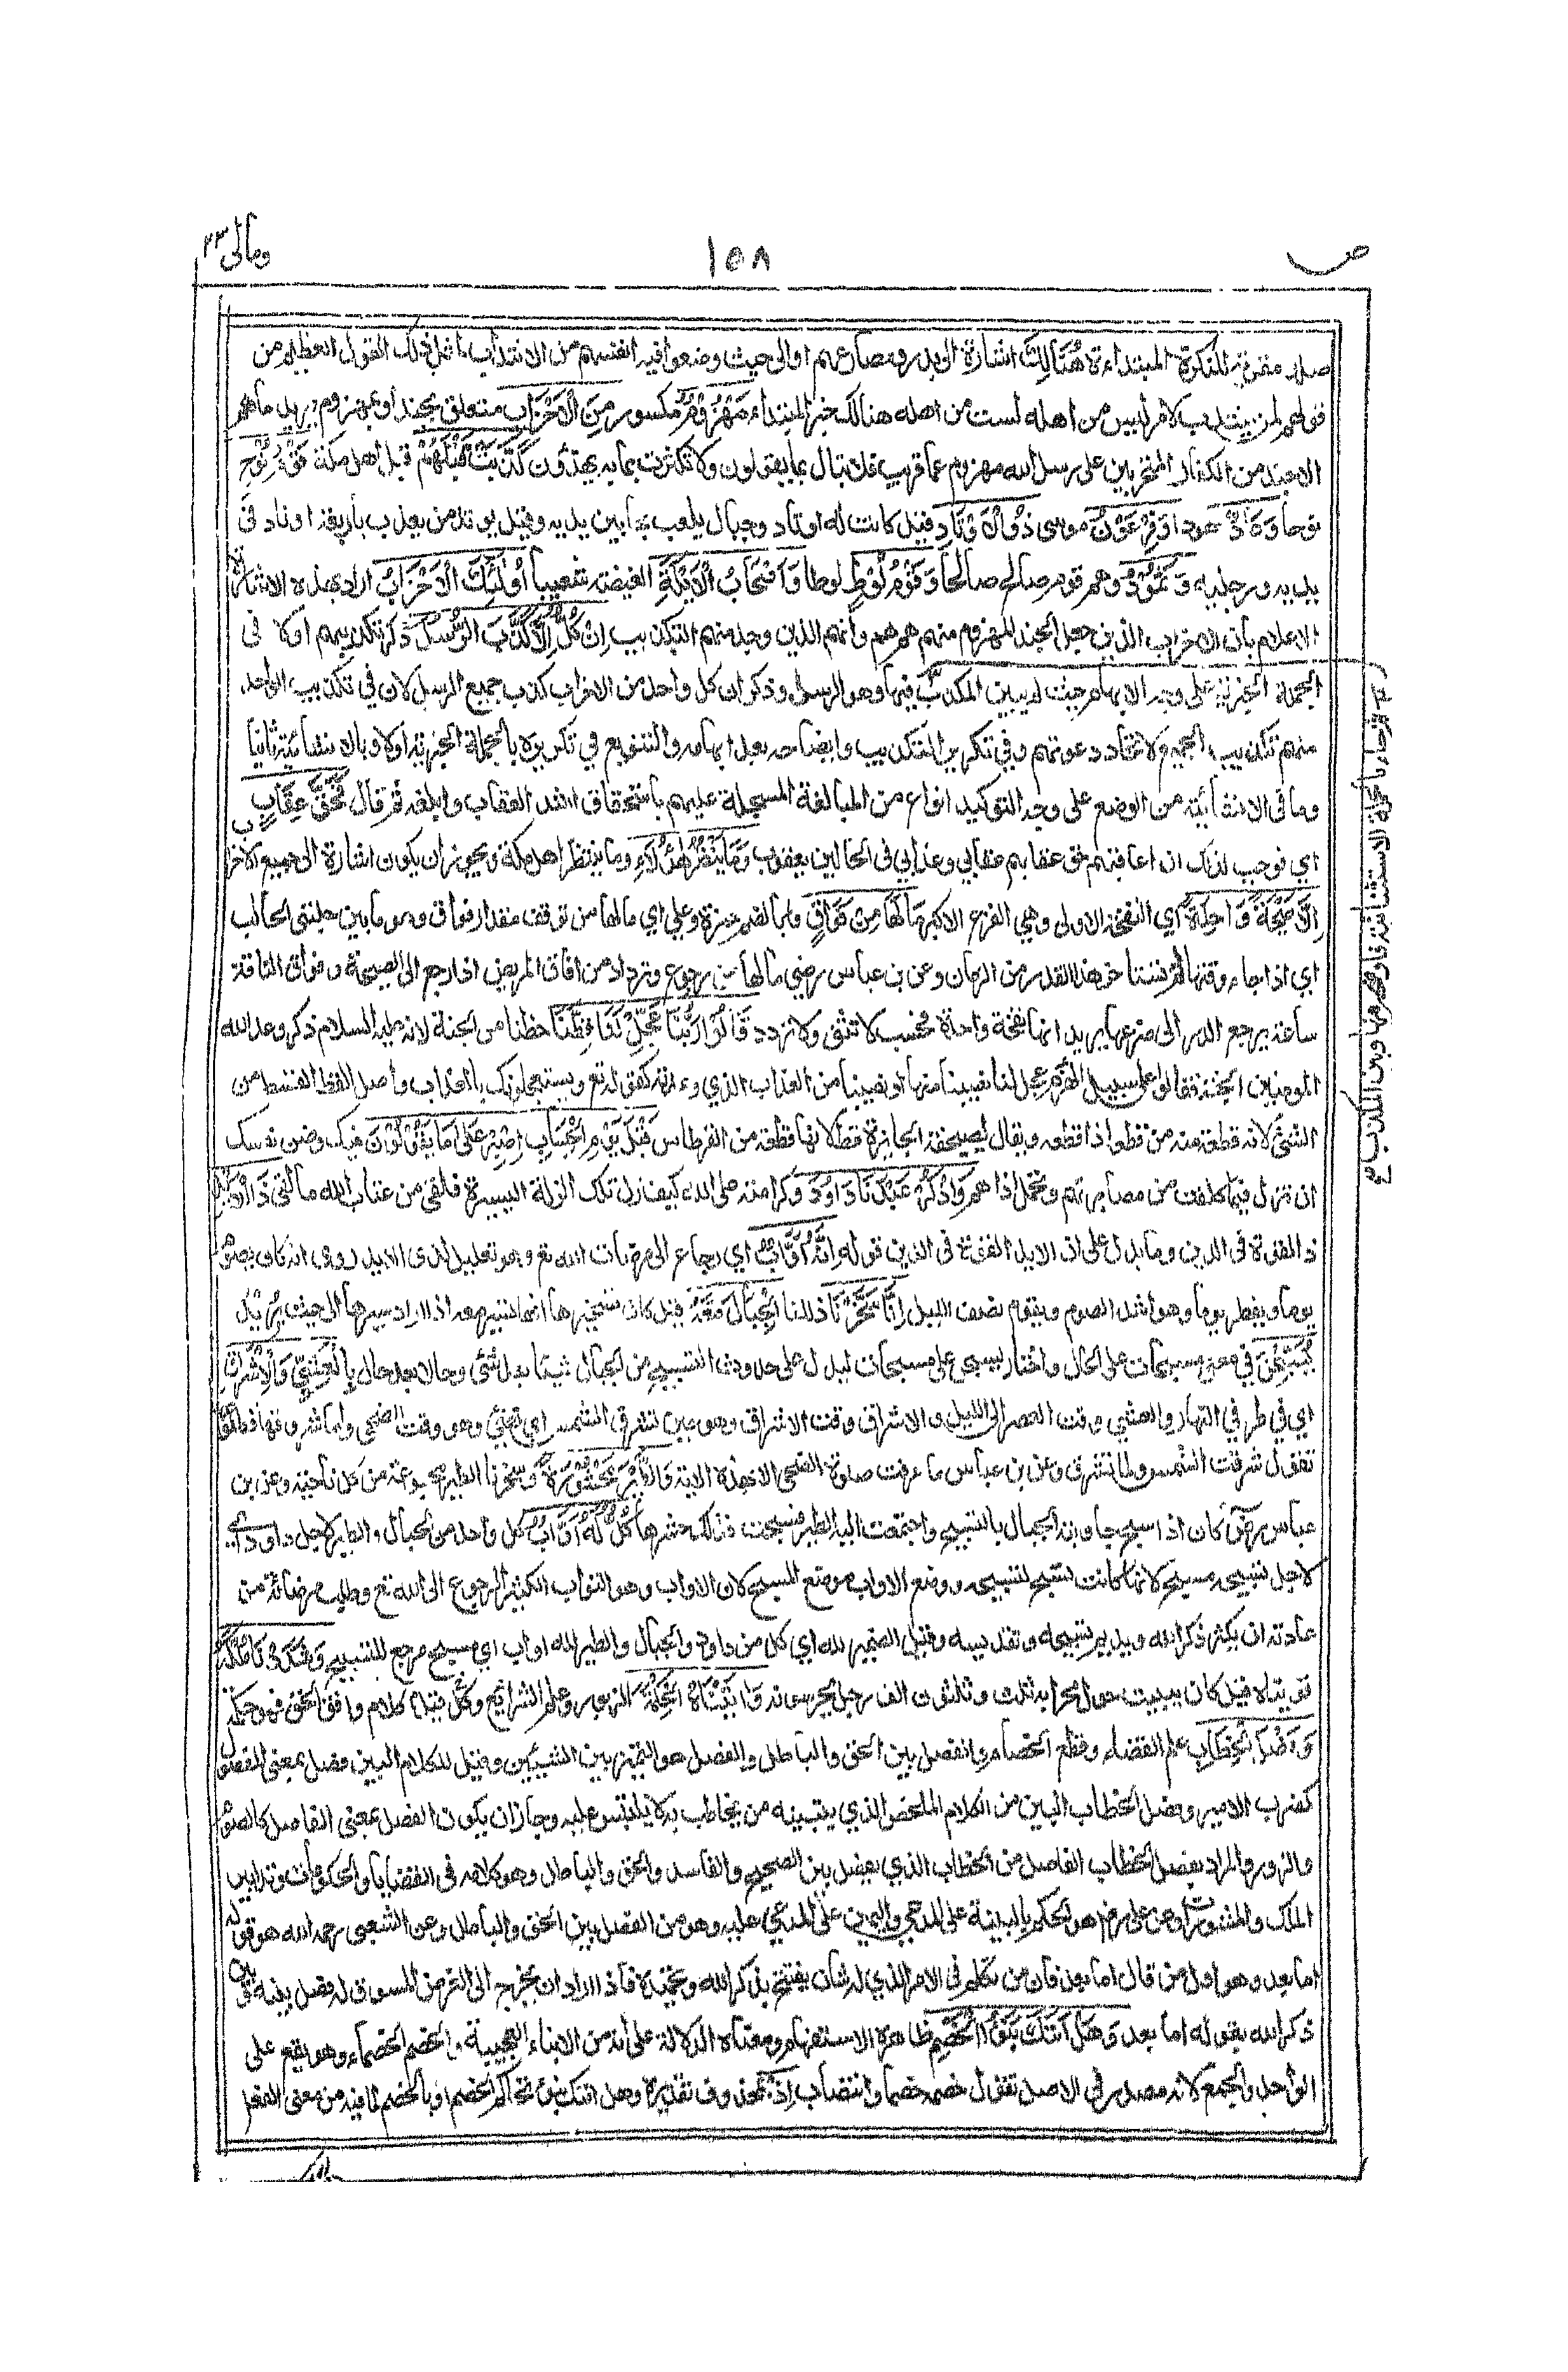 ص
١٥٨
ومالى ٢٣
صلة مقوية للنكرة المبتداءة هُنَالِكَ اشارة الى بدر ومصارعهم او الى حيث وضعوا فيه انفسهم من الانتداب لمثل ذلك القول العظيم من
قولهم لمن ينتدب لامر ليس من اهله لست من اهله هنالك خبر المبتداء مَهْزُوْمٌ مكسور مِنَ الْاَحْزَابِ متعلق بجند او بمهزوم يريد ما هم
الا جند من الكفار المتحزبين على رسل الله مهزوم عما قريب فلا تبال بما يقولون ولا تكترث بما به يهذون كَذَّبَتْ قَبْلَهُمْ قبل اهل مكة قَوْمُ نُوْحٍ
نوحا وَعَادٌ هودا وَفِرْعَوْنُ موسى ذُو الْاَوْتَادِ قيل كانت له اوتاد وحبال يلعب بها بين يديه وقيل يوتد من يعذب باربعة اوتاد فى
يديه ورجليه وَثَمُوْدُ وهم قوم صالح صالحا وَقَوْمُ لُوْطٍ لوطا وَاَصْحَابُ الْاَيْكَةِ الغيضة شعيبا اُولٰئِكَ الْاَحْزَابُ اراد بهذه الاشارة
الاعلام بان الاحزاب الذين جعل الجند المهزوم منهم هم هم وانهم الذين وجد منهم التكذيب اِنْ كُلٌّ اِلَّا كَذَّبَ الرُّسُلَ ذكر تكذيبهم اولا فى
الجملة الخبرية على وجه الابهام حيث لم يبين المكذب فيها وهو الرسول وذكر ان كل واحد من الاحزاب كذب جميع الرسل لان في تكذيب الواحد
منهم تكذيب الجميع لاتحاد دعوتهم وفي تكرير التكذيب وايضاحه بعد ابهامه والتنويع في تكريره بالجملة الخبرية اولا وبالاستثنائية ثانيا
وما فى الاستثنائية من الوضع على وجه التوكيد انواع من المبالغة المسجلة عليهم باستحقاق اشد العقاب وابلغه ثم قال فَحَقَّ عِقَابِ
اي فوجب لذلك ان اعاقبهم حق عقابهم عقابي وعذابي فى الحالين يعقوب وَمَا يَنْظُرُ هٰؤُلَاءِ وما ينتظر اهل مكة ويجوز ان يكون اشارة الى جميع الاحزاب
اِلَّا صَيْحَةً وَاحِدَةً اي النفخة الاولى وهي الفزع الاكبر مَالَهَا مِنْ فَوَاقٍ وبالضم حمزة وعلي اي مالها من توقف مقدار فواق وهو ما بين حلبتى الحالب
اي اذا جاء وقتها لم تستاخر هذا القدر من الزمان وعن بن عباس رضي مالها من رجوع وترداد من افاق المريض اذا رجع الى الصحة وفواق الناقة
ساعة يرجع الدر الى ضرعها يريد انها نفخة واحدة فحسب لا تثنى ولا تردد وَقَالُوْا رَبَّنَا عَجِّلْ لَنَا قِطَّنَا حظنا من الجنة لانه عليه السلام ذكر وعد الله
المومنين الجنة فقالوا على سبيل الهزء عجل لنا نصيبنا منها او نصيبنا من العذاب الذي وعدته كقوله تع ويستعجلونك بالعذاب واصل القط القسط من
الشئ لانه قطعة منه من قطه اذا قطعه ويقال لصحيفة الجائزة قط لانها قطعة من القرطاس قَبْلَ يَوْمِ الْحِسَابِ اِصْبِرْ عَلٰى مَا يَقُوْلُوْنَ فيك وصن نفسك
ان تزل فيما كلفت من مصابرتهم وتحمل اذاهم وَاذْكُرْ عَبْدَنَا دَاوُدَ وكرامته على الله كيف زل تلك الزلة اليسيرة فلقى من عتاب الله ما لقى ذَا الْاَيْدِ
ذا القوة فى الدين وما يدل على ان الايد القوة فى الدين قوله اِنَّهُ اَوَّابٌ اي رجاع الى مرضات الله تع وهو تعليل لذى الايد روى انه كان يصوم
يوما ويفطر يوما وهو اشد الصوم ويقوم نصف الليل اِنَّا سَخَّرْنَا ذللنا الْجِبَالَ مَعَهُ قيل كان تسخيرها انها تسير معه اذا اراد سيرها الى حيث يريد
يُسَبِّحْنَ في معنى مسبحات على الحال واختار يسبحن على مسبحات ليدل على حدوث التسبيح من الجبال شيئا بعد شئ وحالا بعد حال بِالْعَشِيِّ وَالْاِشْرَاقِ
اي في طرفي النهار والعشي وقت العصر الى الليل والاشراق وقت الاشراق وهو حين تشرق الشمس اي تضئ وهو وقت الضحى واما شروقها فطلوعها
تقول شرقت الشمس ولما تشرق وعن بن عباس ما عرفت صلوة الضحى الا بهذه الاية وَالطَّيْرَ مَحْشُوْرَةً وسخرنا الطير مجموعة من كل ناحية وعن بن
عباس رض كان اذا سبح جاوبته الجبال بالتسبيح واجتمعت اليه الطير فسبحت فذلك حشرها كُلٌّ لَهُ اَوَّابٌ كل واحد من الجبال والطير لاجل داود اي
لاجل تسبيحه مسبح لانها كانت تسبح لتسبيحه ووضع الاواب موضع المسبح لان الاواب وهو التواب الكثير الرجوع الى الله تع وطلب مرضاته من
عادته ان يكثر ذكر الله ويديم تسبيحه وتقديسه وقيل الضمير لله اي كل من داود والجبال والطير لله اواب اي مسبح مرجع للتسبيح وَشَدَدْنَا مُلْكَهُ
قويناه قيل كان يبيت حول محرابه ثلث وثلثون الف رجل يحرسونه وَاٰتَيْنٰهُ الْحِكْمَةَ الزبور وعلم الشرائع وكل كلام وافق الحق فهو حكمة
وَفَصْلَ الْخِطَابِ علم القضاء وقطع الخصام والفصل بين الحق والباطل والفصل هو التميز بين الشيئين وقيل للكلام البين فصل بمعنى المفصول
كضرب الامير وفصل الخطاب البين من الكلام الملخص الذي يتبينه من يخاطب به لا يلتبس عليه وجاز ان يكون الفصل بمعنى الفاصل كالصوم
والزور والمراد بفصل الخطاب الفاصل من الخطاب الذي يفصل بين الصحيح والفاسد والحق والباطل وهو كلامه فى القضايا والحكومات وتدابير
الملك والمشورات وعن علي رض هو الحكم بالبينة على المدعي واليمين على المدعي عليه وهو من الفصل بين الحق والباطل وعن الشعبى رحمه الله هو قوله
اما بعد وهو اول من قال اما بعد فان من تكلم في الامر الذي له شان يفتتح بذكر الله وتحميده فاذا اراد ان يخرج الى الغرض المسوق له فصل بينه وبين
ذكر الله بقوله اما بعد وَهَلْ اَتٰىكَ نَبَؤُا الْخَصْمِ ظاهره الاستفهام ومعناه الدلالة على انه من الانباء العجيبة والخصم الخصماء وهو يقع على
الواحد والجمع لانه مصدر في الاصل تقول خصمه خصما وانتصاب اِذْ بمحذوف تقديره وهل اتك نبؤ تحاكم الخصم او بالخصم لما فيه من معنى الفعل